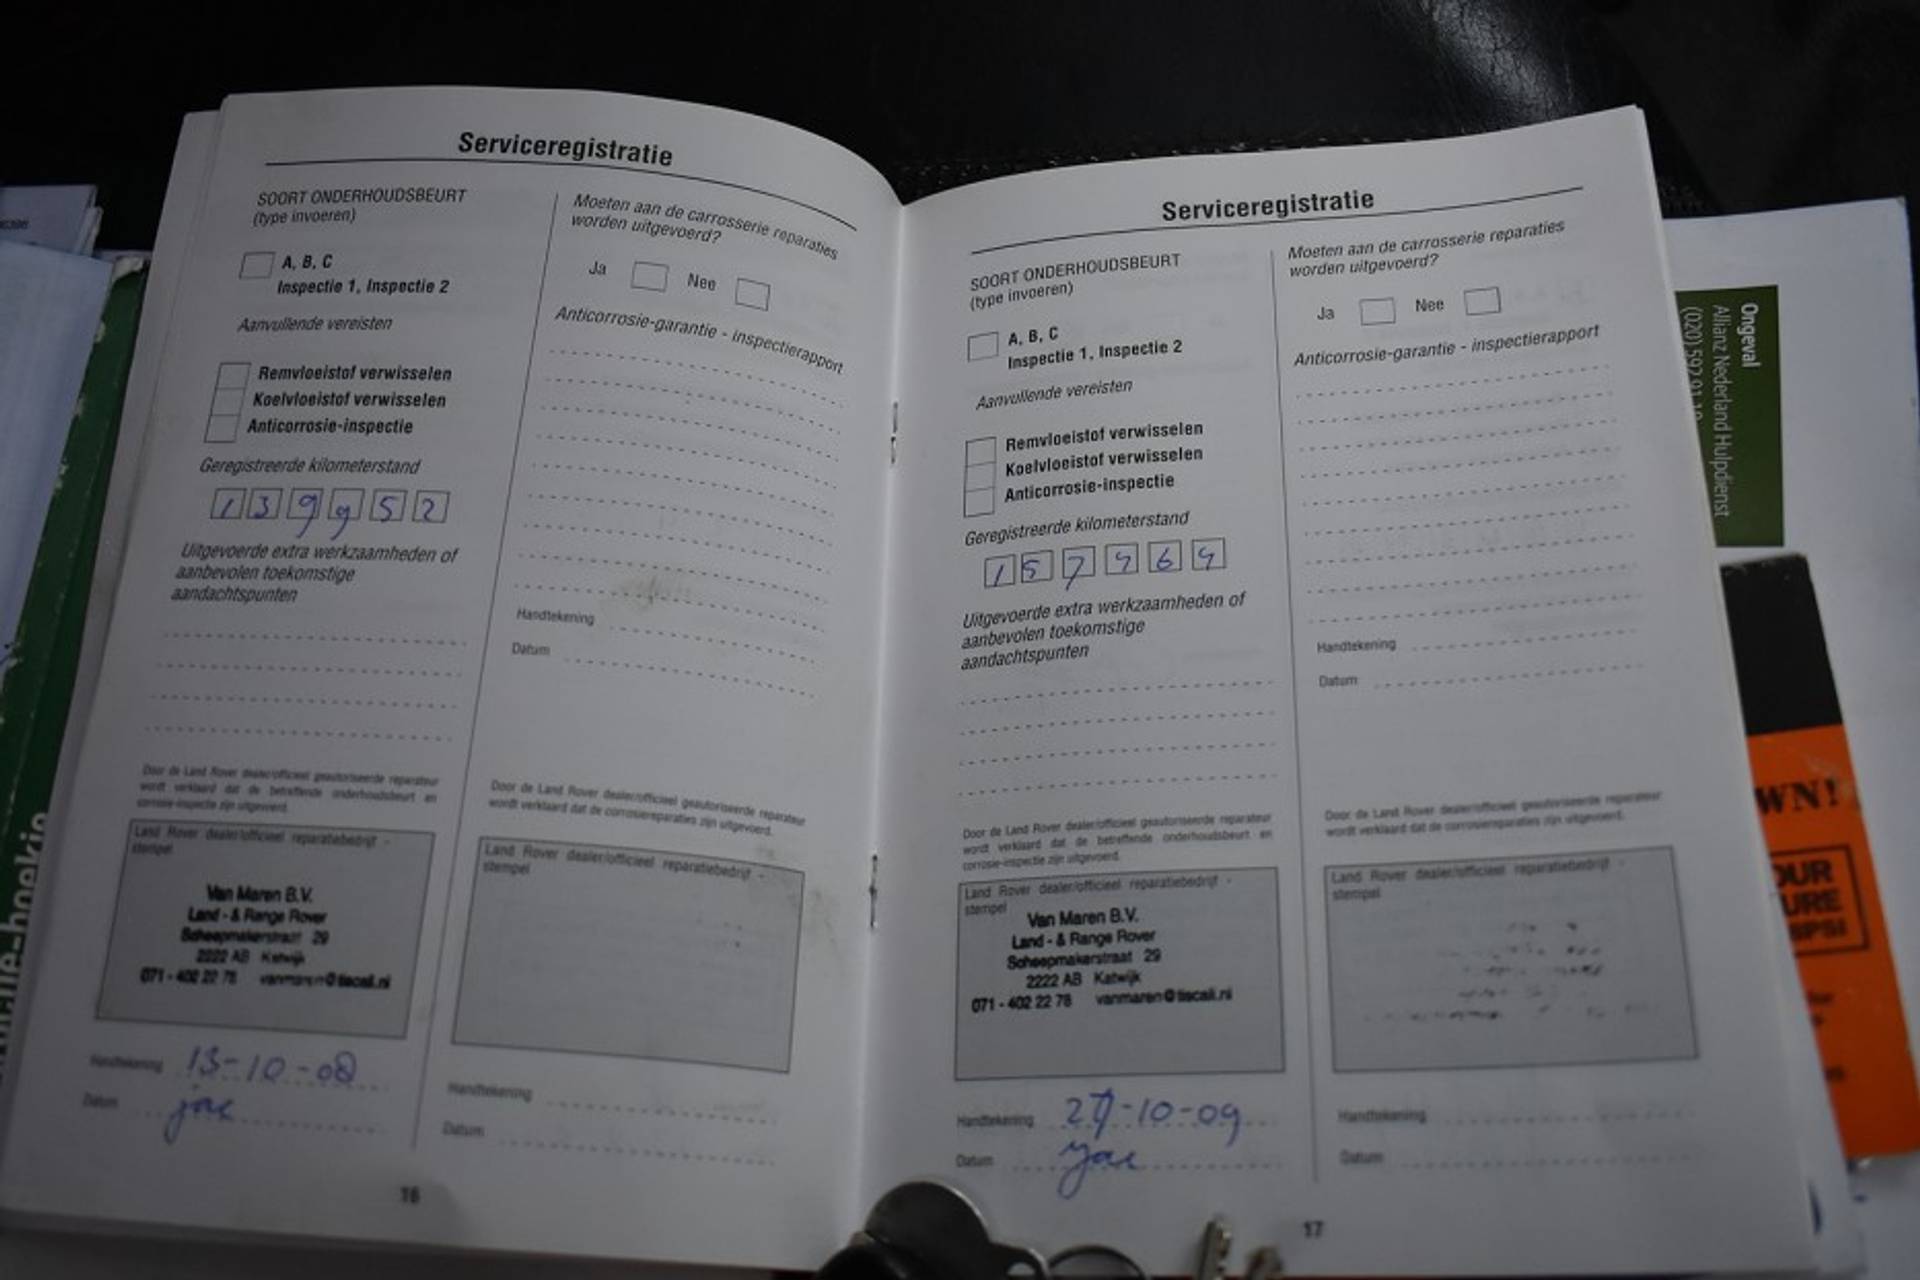 Serviceregistratie
SOORT ONDERHOUDSBEURT
(type invoeren)
A, B, C
Inspectie 1, Inspectie 2
Aanvullende vereisten
Remvloeistof verwisselen
Koelvloeistof verwisselen
Anticorrosie-inspectie
Geregistreerde kilometerstand
139952
Uitgevoerde extra werkzaamheden of
aanbevolen toekomstige
aandachtspunten
Door de Land Rover dealer/officieel geautoriseerde reparateur
wordt verklaard dat de betreffende onderhoudsbeurt en
corrosie-inspectie zijn uitgevoerd.
Land Rover dealer/officieel reparatiebedrijf -
stempel
Van Maren B.V.
Land - & Range Rover
Scheepmakerstraat 29
2222 AB Katwijk
071 - 402 22 78 vanmaren@tiscali.nl
Handtekening 13-10-08
Datum jac
16
Moeten aan de carrosserie reparaties
worden uitgevoerd?
Ja Nee
Anticorrosie-garantie - inspectierapport
Handtekening
Datum
Door de Land Rover dealer/officieel geautoriseerde reparateur
wordt verklaard dat de corrosiereparaties zijn uitgevoerd.
Land Rover dealer/officieel reparatiebedrijf -
stempel
Handtekening
Datum
Serviceregistratie
SOORT ONDERHOUDSBEURT
(type invoeren)
A, B, C
Inspectie 1, Inspectie 2
Aanvullende vereisten
Remvloeistof verwisselen
Koelvloeistof verwisselen
Anticorrosie-inspectie
Geregistreerde kilometerstand
157464
Uitgevoerde extra werkzaamheden of
aanbevolen toekomstige
aandachtspunten
Door de Land Rover dealer/officieel geautoriseerde reparateur
wordt verklaard dat de betreffende onderhoudsbeurt en
corrosie-inspectie zijn uitgevoerd.
Land Rover dealer/officieel reparatiebedrijf -
stempel
Van Maren B.V.
Land - & Range Rover
Scheepmakerstraat 29
2222 AB Katwijk
071 - 402 22 78 vanmaren@tiscali.nl
Handtekening 27-10-09
Datum jac
17
Moeten aan de carrosserie reparaties
worden uitgevoerd?
Ja Nee
Anticorrosie-garantie - inspectierapport
Handtekening
Datum
Door de Land Rover dealer/officieel geautoriseerde reparateur
wordt verklaard dat de corrosiereparaties zijn uitgevoerd.
Land Rover dealer/officieel reparatiebedrijf -
stempel
Handtekening
Datum
Ongeval
Allianz Nederland Hulpdienst
(020) 592
WN!
OUR
URE